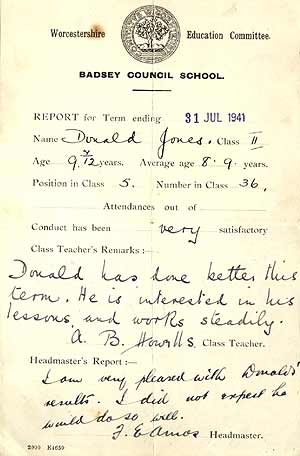 Worcestershire Education Committee.
BADSEY COUNCIL SCHOOL.
REPORT for Term ending 31 JUL 1941
Name Donald Jones. Class II
Age 9 7/12 years. Average age 8 . 9 . years.
Position in Class 5. Number in Class 36.
Attendances out of
Conduct has been very satisfactory
Class Teacher's Remarks :—
Donald has done better this
term. He is interested in his
lessons and works steadily.
A. B. Howells, Class Teacher.
Headmaster's Report :—
I am very pleased with Donald's
results. I did not expect he
would do so well.
F. E Amos Headmaster.
2000 E4650